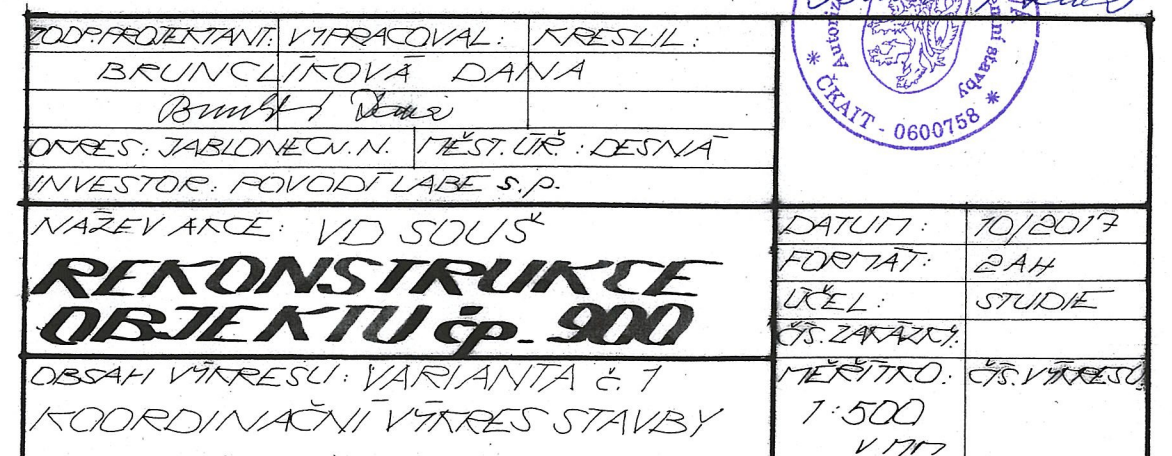 ZODP. PROJEKTANT: VYPRACOVAL: KRESLIL:
BRUNCLÍKOVÁ DANA
OKRES: JABLONEC N. N. MĚST. ÚŘ.: DESNÁ
INVESTOR: POVODÍ LABE s.p.
NÁZEV AKCE: VD SOUŠ
REKONSTRUKCE
OBJEKTU čp. 900
OBSAH VÝKRESU: VARIANTA č. 1
KOORDINAČNÍ VÝKRES STAVBY
ČKAIT - 0600758
DATUM: 10/2017
FORMÁT: 2A4
ÚČEL: STUDIE
ČÍS. ZAKÁZKY:
MĚŘÍTKO: ČÍS. VÝKRESU:
1:500
V MM